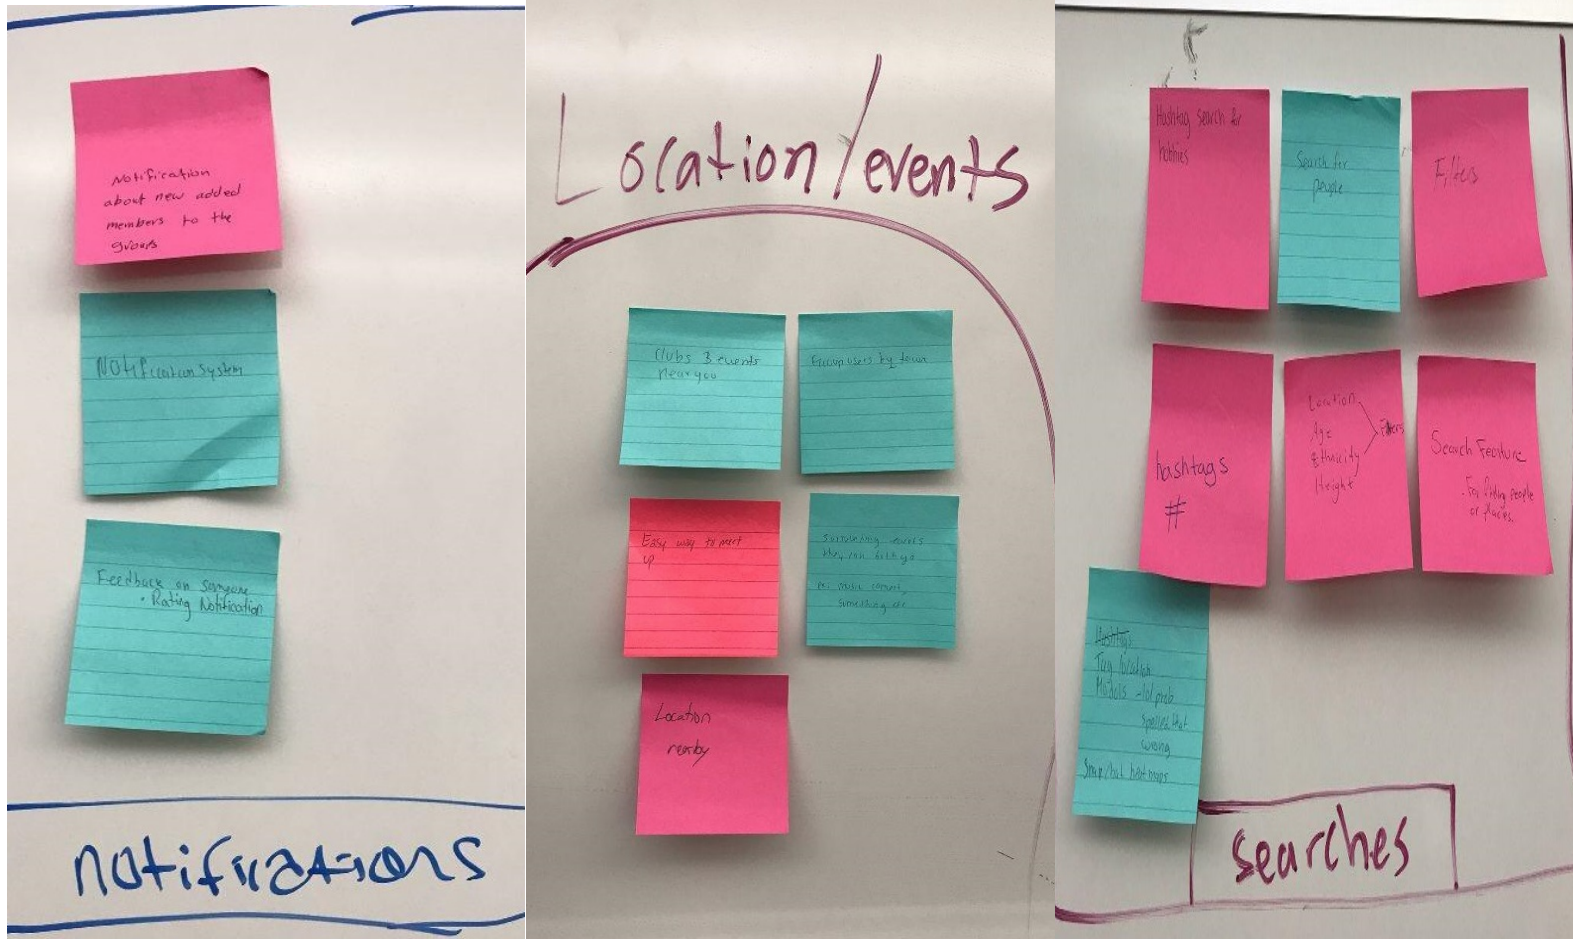 Notification
about new added
members to the
groups
Notification system
Feedback on someone
• Rating Notification
notifications
Location/events
Clubs 3 events
near you
Group users by town
Easy way to meet
up
surrounding events
they can both go
ex: music concert,
something etc
Location
nearby
Hashtag search for
hobbies
Search for
people
Filters
hashtags
#
Location
Age
Ethnicity
Height
Filters
Search Feature
. For finding people
or places.
Hashtags
Tag location
Models - lol prob
spelled that
wrong
Snapchat heat maps
searches